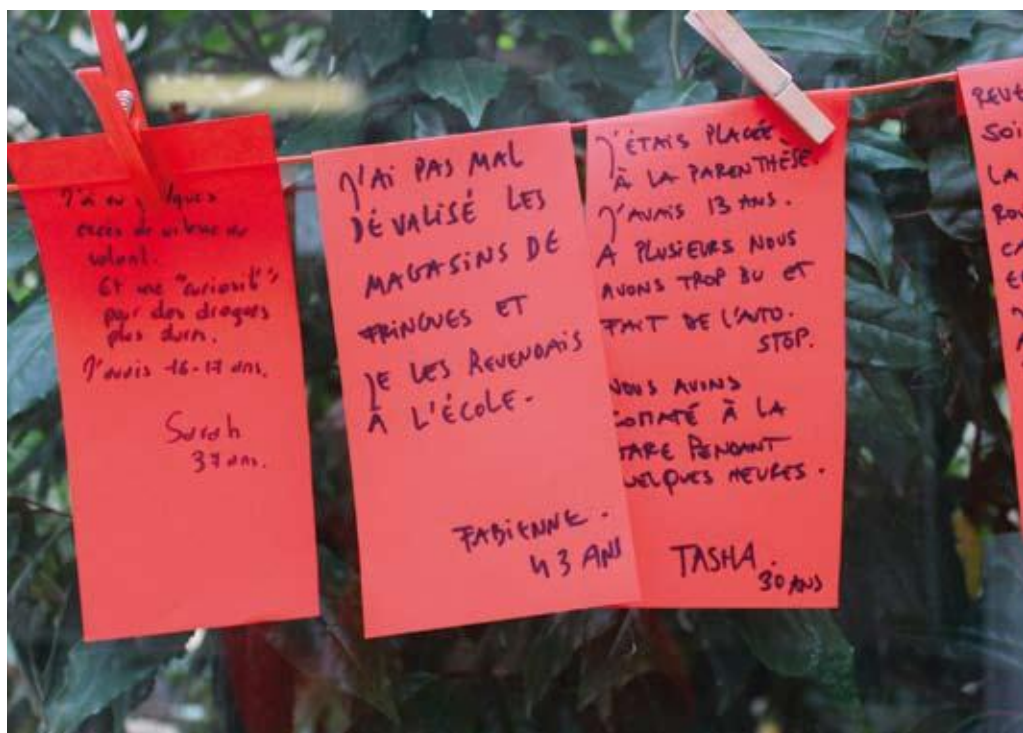 J'ai eu
excès de vitesse au
volant.
Et une "curiosité"
pour des drogues
plus dures.
J'avais 16-17 ans.
Sarah
37 ans.
J'AI PAS MAL
DÉVALISÉ LES
MAGASINS DE
FRINGUES ET
JE LES REVENDAIS
À L'ÉCOLE.
FABIENNE.
43 ANS
J'ÉTAIS PLACÉE
À LA PARENTHÈSE.
J'AVAIS 13 ANS.
A PLUSIEURS NOUS
AVONS TROP BU ET
FAIT DE L'AUTO.
STOP.
NOUS AVONS
COMATÉ À LA
GARE PENDANT
QUELQUES HEURES.
TASHA.
30 ANS
SOI
LA